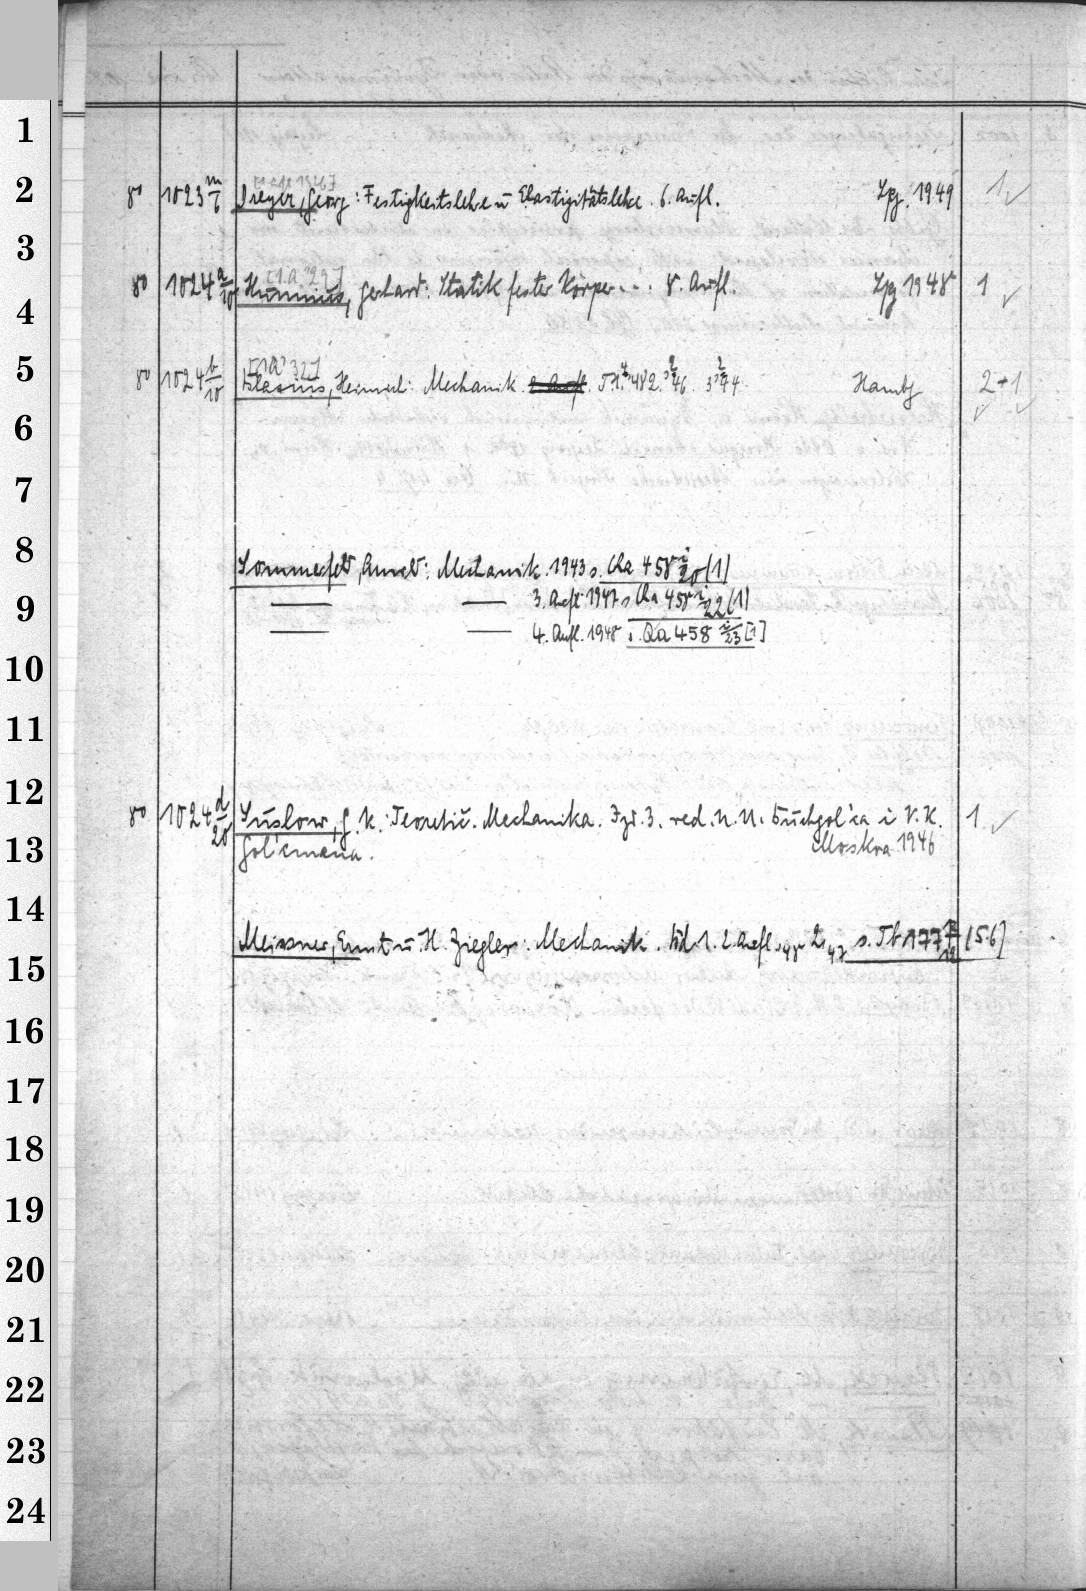 1
2
3
4
5
6
7
8
9
10
11
12
13
14
15
16
17
18
19
20
21
22
23
24
8° 1023 m/6 Dreyer, Georg: Festigkeitslehre u Elastizitätslehre. 6. Aufl. Lpg. 1949 1
8° 1024 a/10 Hummus, Gerhart: Statik fester Körper... 8. Aufl. Lpg 1948 1
[1a 32]
8° 1024 b/10 Blasius, Heinrich: Mechanik Hambg 2+1
Sommerfeld, Arnold: Mechanik. 1943 s. Qa 458 i/20 (1)
— — 3. Aufl 1947 s Qa 458 i/22 (1)
— — 4. Aufl. 1948 s. Qa 458 i/23 [1]
8° 1024 d/20 Suslow, G. K.: Teoretič. Mechanika. Izd. 3. red. N. N. Buchgol'ca i V. K. 1
Gol'cmana. Moskva 1946
Meissner, Ernst u. H. Ziegler: Mechanik. Bd 1. 2. Aufl. 48 2, 47 s. Tb 177 [56]